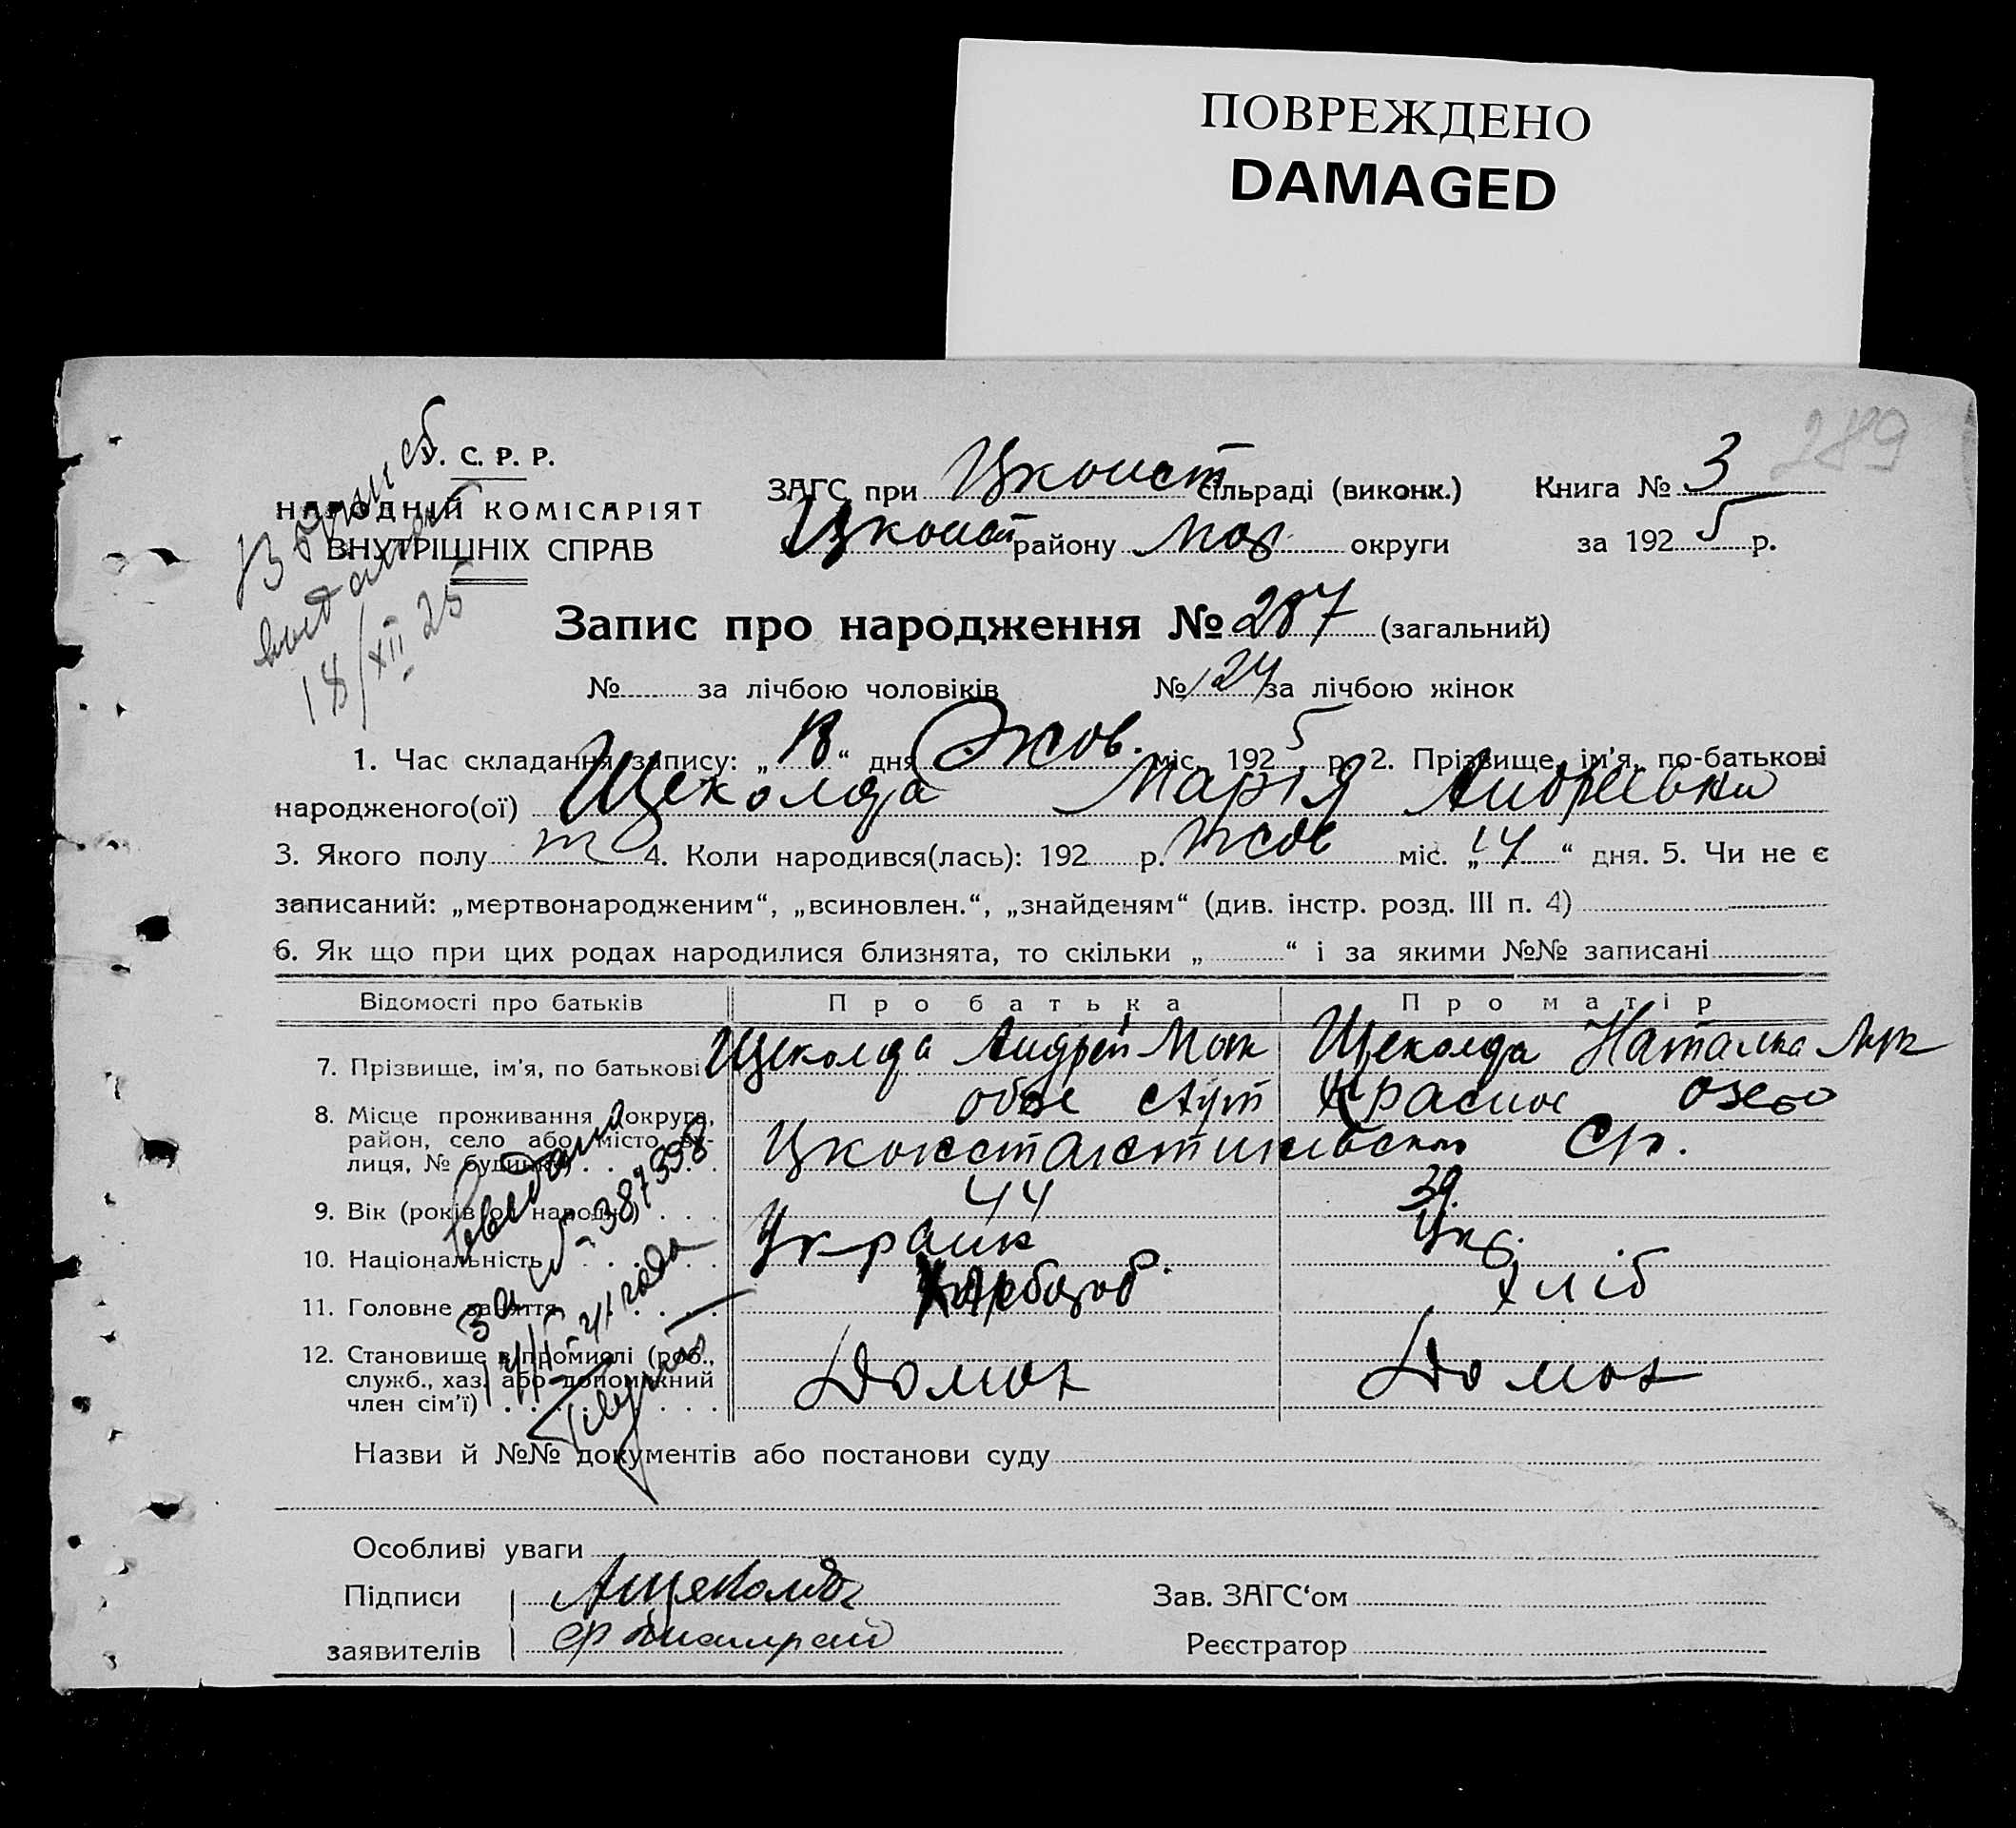 ПОВРЕЖДЕНО
DAMAGED
289
У. С. Р. Р.
НАРОДНІЙ КОМІСАРІЯТ
ВНУТРІШНІХ СПРАВ
18/XII 25
ЗАГС при Цконст сільраді (виконк.) Книга № 3
Цконст району округи за 1925 р.
Запис про народження № 287 (загальний)
№ за лічбою чоловіків № 124 за лічбою жінок
1. Час складання запису: „ “ дня Жов. міс. 1925 р. 2. Прізвище, ім'я, по-батькові
народженого(ої) Щеколда Марія Андреевна
3. Якого полу ж 4. Коли народився(лась): 192 р. жов міс. „14“ дня. 5. Чи не є
записаний: „мертвонародженим“, „всиновлен.“, „знайденям“ (див. інстр. розд. III п. 4)
6. Як що при цих родах народилися близнята, то скільки „ “ і за якими №№ записані
Відомості про батьків Про батька Про матір
7. Прізвище, ім'я, по батькові Щеколда Андрей Щеколда Наталка
8. Місце проживання (округа, район, село або місто, вулиця, № будинку) Красное
Цконстантиновского
9. Вік (років од народж.) 44 39
10. Національність Украин Укр.
11. Головне заняття Хлебороб. хліб
12. Становище в промислі (роб., служб., хаз. або допоміжний член сім'ї) Домох Домох
Назви й №№ документів або постанови суду
Особливі уваги
Підписи АЩеколда Зав. ЗАГС‘ом
заявителів Реєстратор